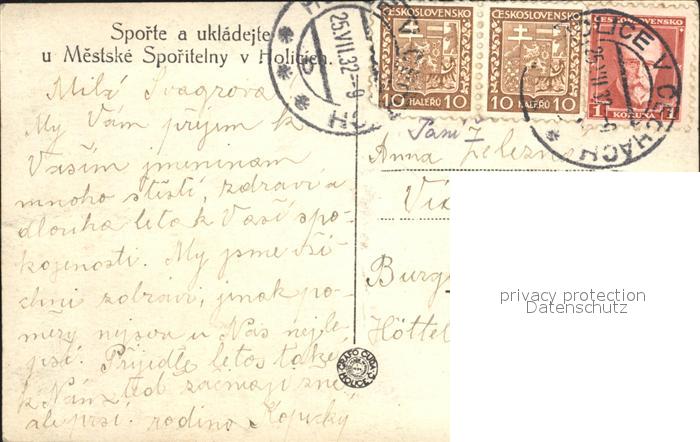 Spořte a ukládejte
u Městské Spořitelny v Holicích.
Milá Švagrova
My Vám přejem k
Vaším jmeninam
mnoho štístí, zdraví a
dlouha leta k Vaší spo-
kojenosti. My jsme vši
chni zdraví, jinak po-
měry nejsou u Nás nejle-
pší. Přijedte letos také
k Nám
ale prší. rodina Kopecky
25.VII.32-9
ČESKOSLOVENSKO
10 HALÉŘŮ 10
ČESKOSLOVENSKO
10 HALÉŘŮ 10
ČESKOSLOVENSKO
1 KORUNA 1
HOLICE V ČECHÁCH
Paní
Anna Železn
Burg
Höttel
GRAFO ČUDA HOLICE Č.
privacy protection
Datenschutz